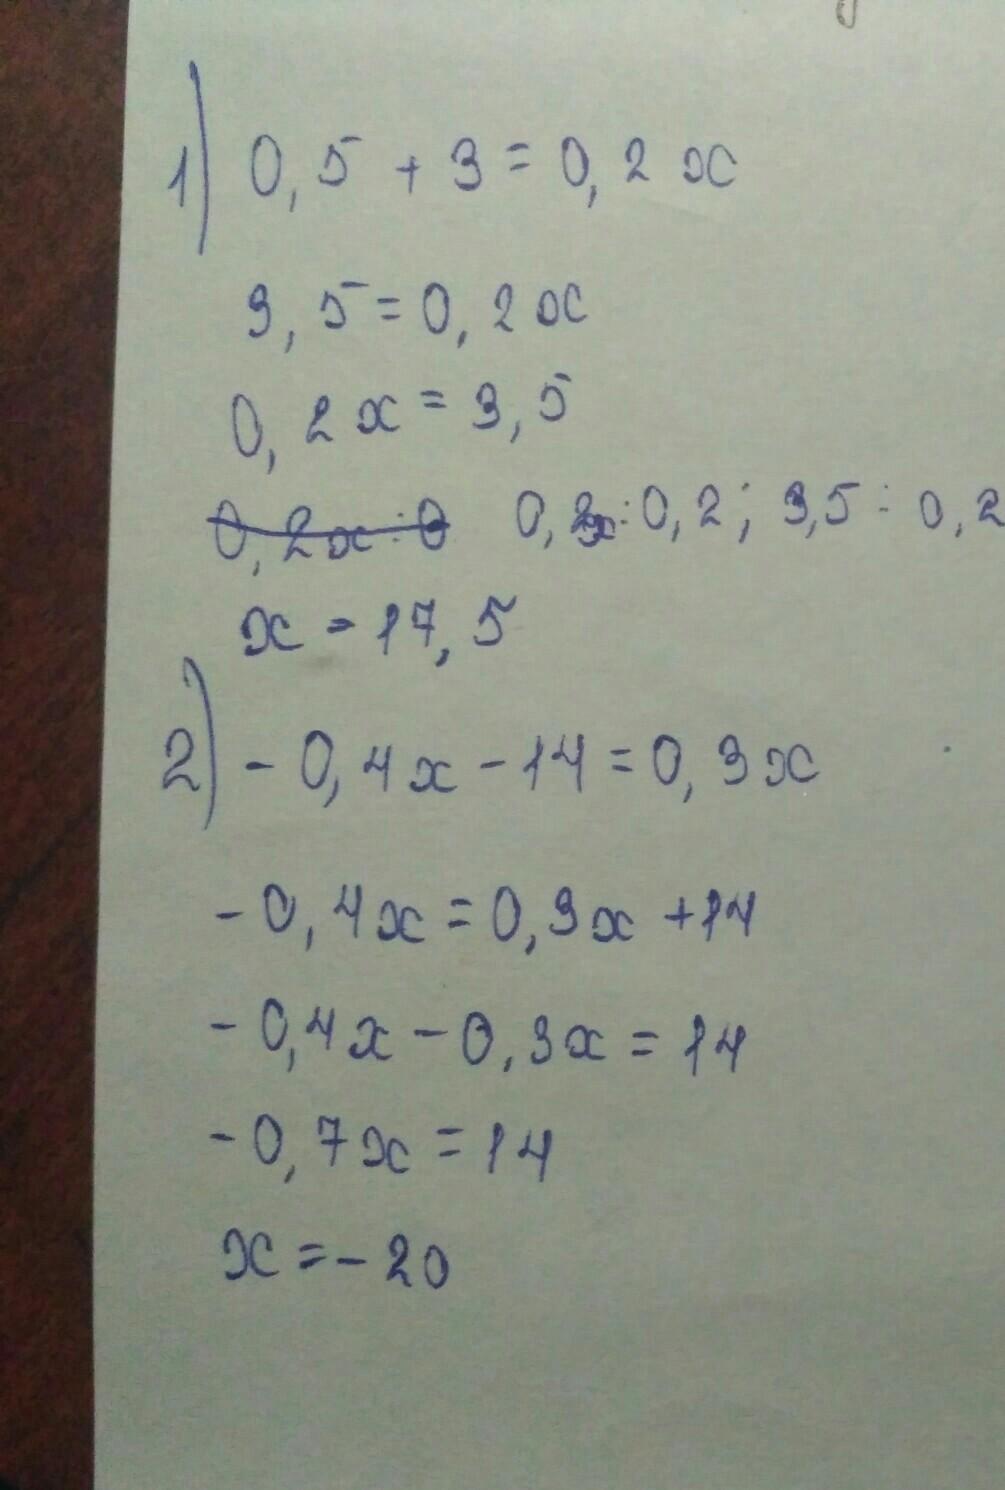 1) 0,5 + 3 = 0,2x
3,5 = 0,2x
0,2x = 3,5
0,2x : 0 0,2x : 0,2; 3,5 : 0,2
x = 17,5
2) - 0,4x - 14 = 0,3x
- 0,4x = 0,3x + 14
- 0,4x - 0,3x = 14
- 0,7x = 14
x = - 20